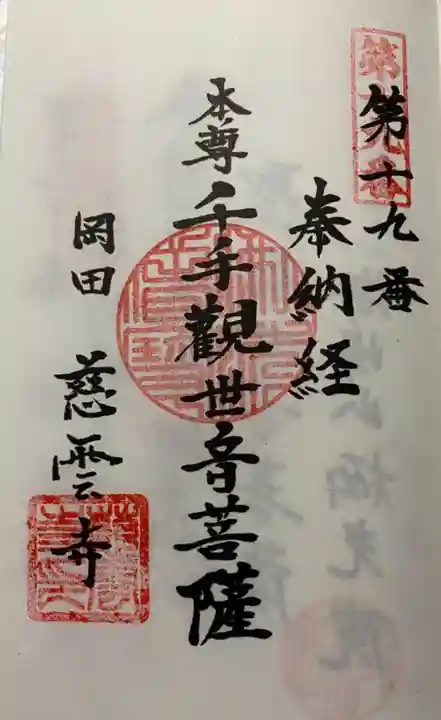 第十九番
第十九番
奉納経
本尊 千手觀世音菩薩
岡田 慈雲寺